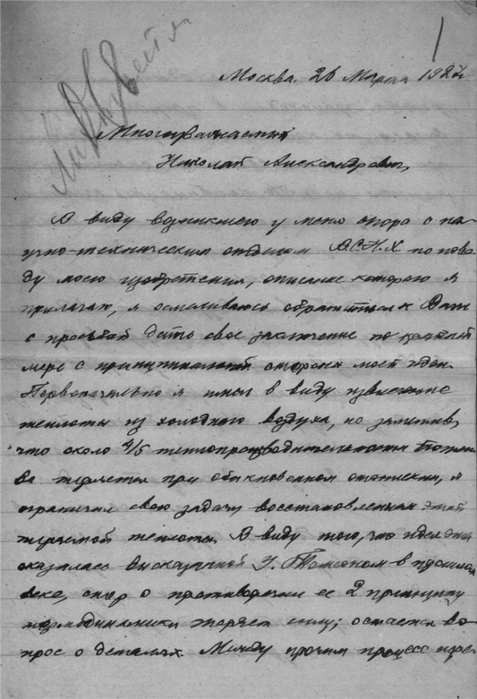 1
Москва. 26 Марта 1927г.
Многоуважаемый
Николай Александрович,
В виду возникшего у меня спора с на-
учно-техническим отделом ВСНХ по пово-
ду моего изобретения, описание которого я
прилагаю, я осмеливаюсь обратиться к Вам
с просьбой дать свое заключение по крайней
мере с принципиальной стороны моей идеи.
Первоначально я имел в виду извлечение
теплоты из холодного воздуха, но заметив,
что около 4/5 теплопроизводительности топли-
ва теряется при обыкновенном отоплении, я
ограничил свою задачу восстановлением этой
теряемой теплоты. В виду того, что идея эта
оказалась высказанной У. Томсоном в прошлом
веке, спор о противоречии ее 2 принципу
термодинамики теряет силу; остается во-
прос о деталях. Между прочим процесс